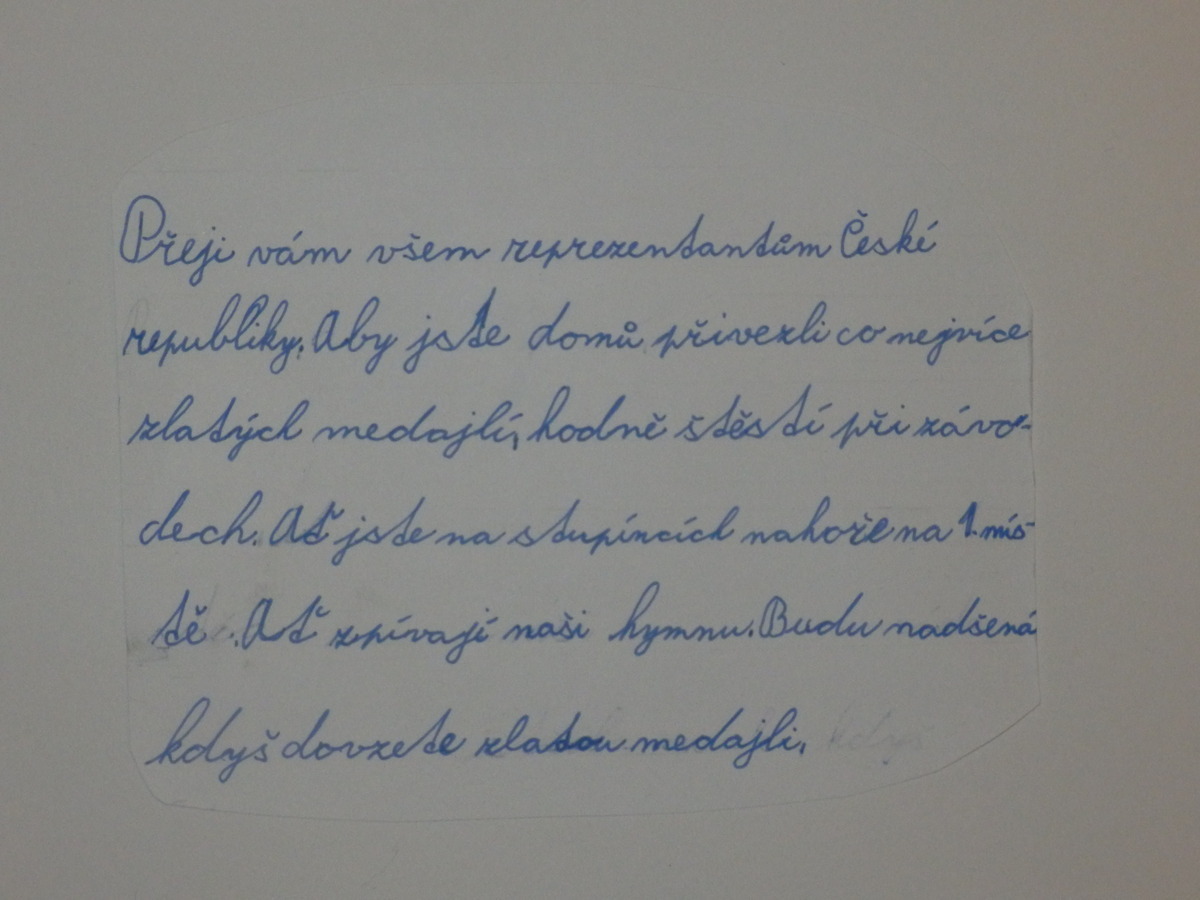 Přeji vám všem reprezentantům České
republiky. Aby jste domů přivezli co nejvíce
zlatých medajlí, hodně štěstí při závo-
dech. Ať jste na stupíncích nahoře na 1. mís-
tě. Ať zpívají naši hymnu. Budu nadšená
kdyš dovzete zlatou medajli.